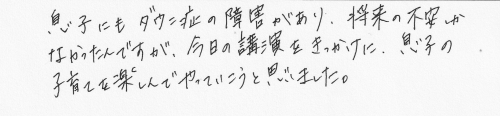 息子にもダウン症の障害があり、将来の不安しか
なかったんですが、今日の講演をきっかけに、息子の
子育てを楽しんでやっていこうと思いました。